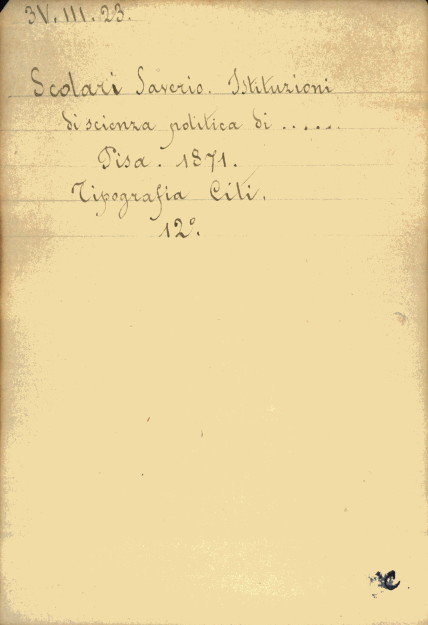 3V.III.23.
Scolari Saverio. Istituzioni
di scienza politica di ......
Pisa. 1871.
Tipografia Citi.
12º.